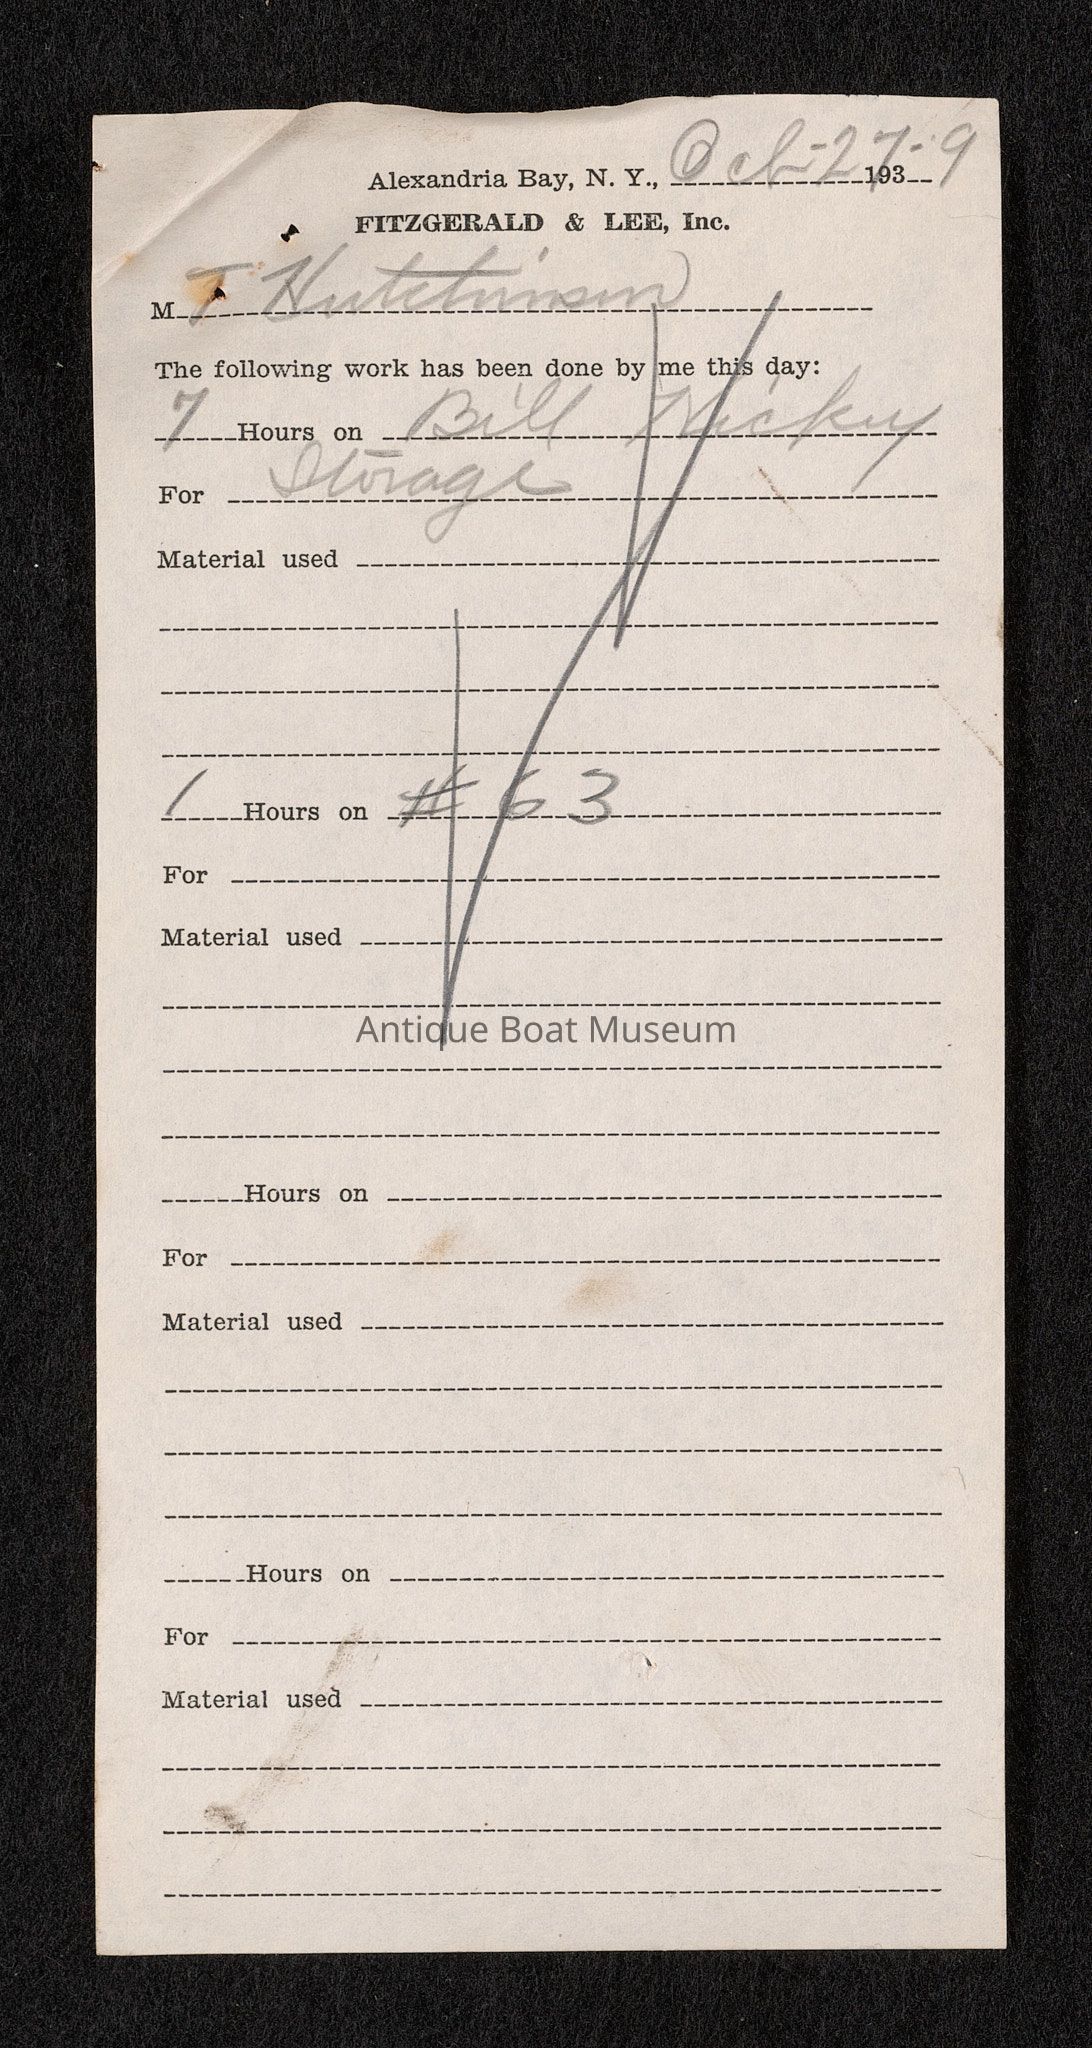 Alexandria Bay, N. Y., Oct-27-9 193
FITZGERALD & LEE, Inc.
M T Hutchinson
The following work has been done by me this day:
7 Hours on Bill
For Storage
Material used
1 Hours on # 63
For
Material used
Antique Boat Museum
Hours on
For
Material used
Hours on
For
Material used